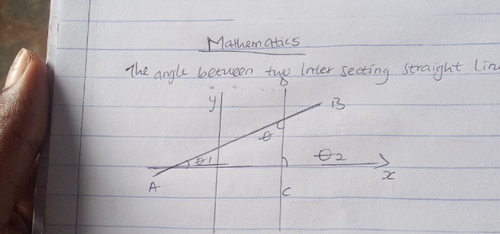 Mathematics
The angle between two Inter secting straight Lin
D
y
B
θ
θ1
θ2
x
A
C